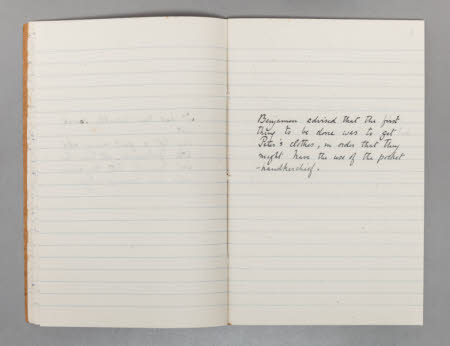 Benjamin advised that the first
thing to be done was to get
Peter's clothes, in order that they
might have the use of the pocket
-handkerchief.